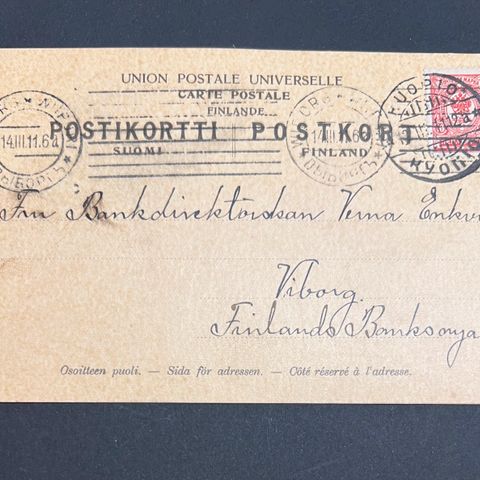 UNION POSTALE UNIVERSELLE
CARTE POSTALE
FINLANDE
POSTIKORTTI POSTKORT
SUOMI FINLAND
14.III.11.6a
KUOPIO
КУОПІО
Fru Bankdirektorskan Verna Enkv
Viborg.
Finlands Banks nya
Osoitteen puoli. — Sida för adressen. — Côté réservé à l'adresse.